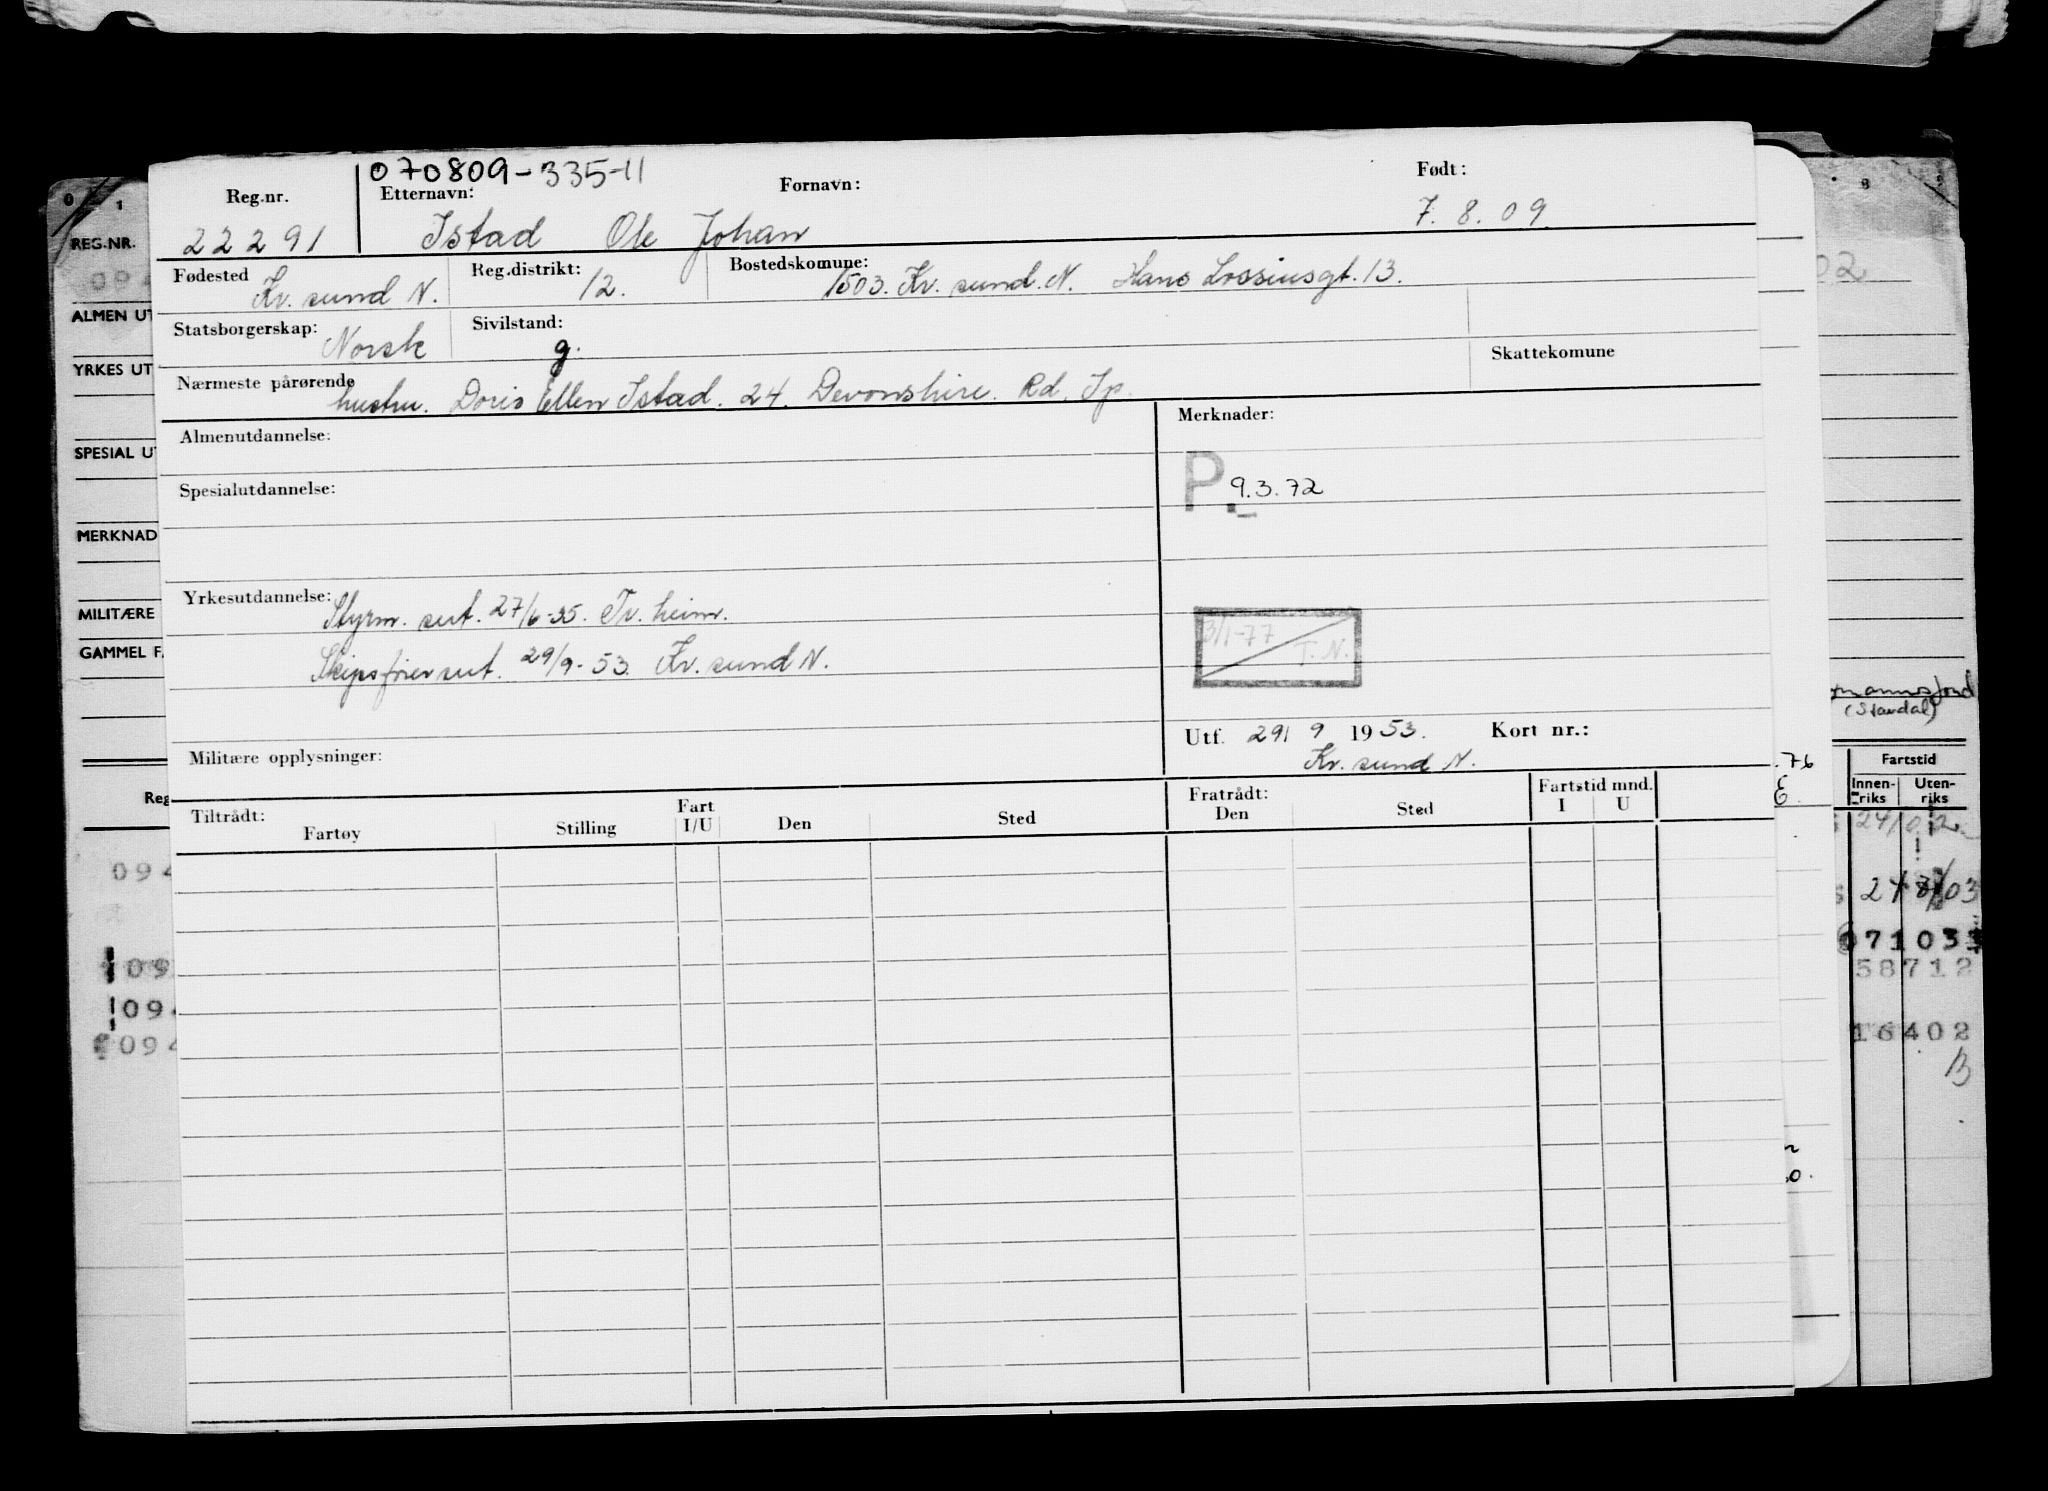 070809-335-11
Reg.nr. Etternavn: Fornavn: Født:
22291 Istad Ole Johan 7. 8. 09.
Fødested Kr. sund N. Reg.distrikt: 12. Bostedskomune: 1503. Kr. sund. N. Hans Lossiusgt. 13.
Statsborgerskap: Norsk Sivilstand: g.
Skattekomune
Nærmeste pårørende hustru. Doris Ellen Istad. 24. Devonshire. Rd.
Almenutdannelse: Merknader:
Spesialutdannelse: P. 9.3.72
Yrkesutdannelse: Styrm. sert. 27/6-35. Tr. heim.
3/1-77 T. N.
Skipsfører sert. 29/9-53. Kr. sund N.
Utf. 29/ 9 1953. Kort nr.:
Kr. sund N.
Militære opplysninger:
Tiltrådt: Fart Fratrådt: Fartstid mnd.
Fartøy Stilling I/U Den Sted Den Sted I U
REG.NR.
094
ALMEN UT
YRKES UT
SPESIAL UT
MERKNAD
MILITÆRE
GAMMEL FA
Reg
094
09
094
094
02
(Standal)
.76
E.
Fartstid
Innen-riks Uten-riks
071033
58712
16402
B